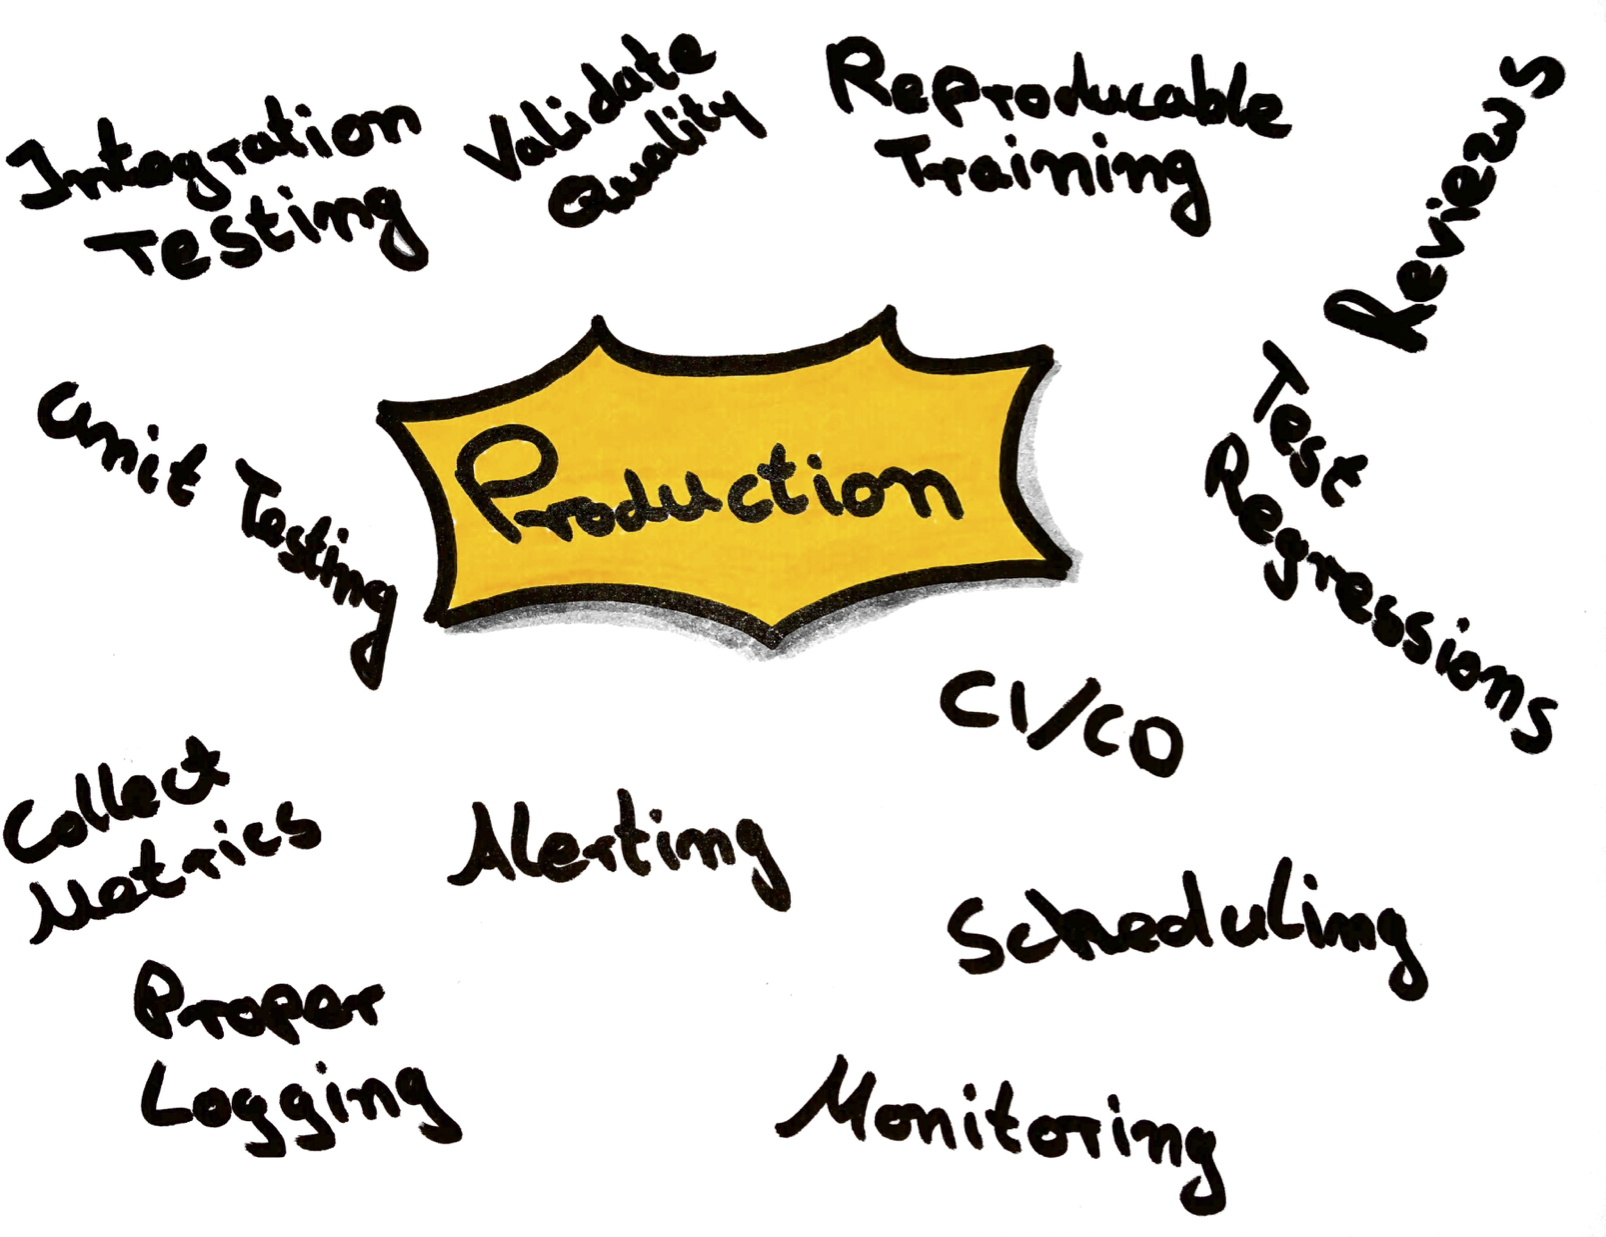 Integration
Testing
Validate
Quality
Reproducable
Training
Reviews
Unit Testing
Production
Test
Regressions
CI/CD
Collect
Metrics
Alerting
Scheduling
Proper
Logging
Monitoring